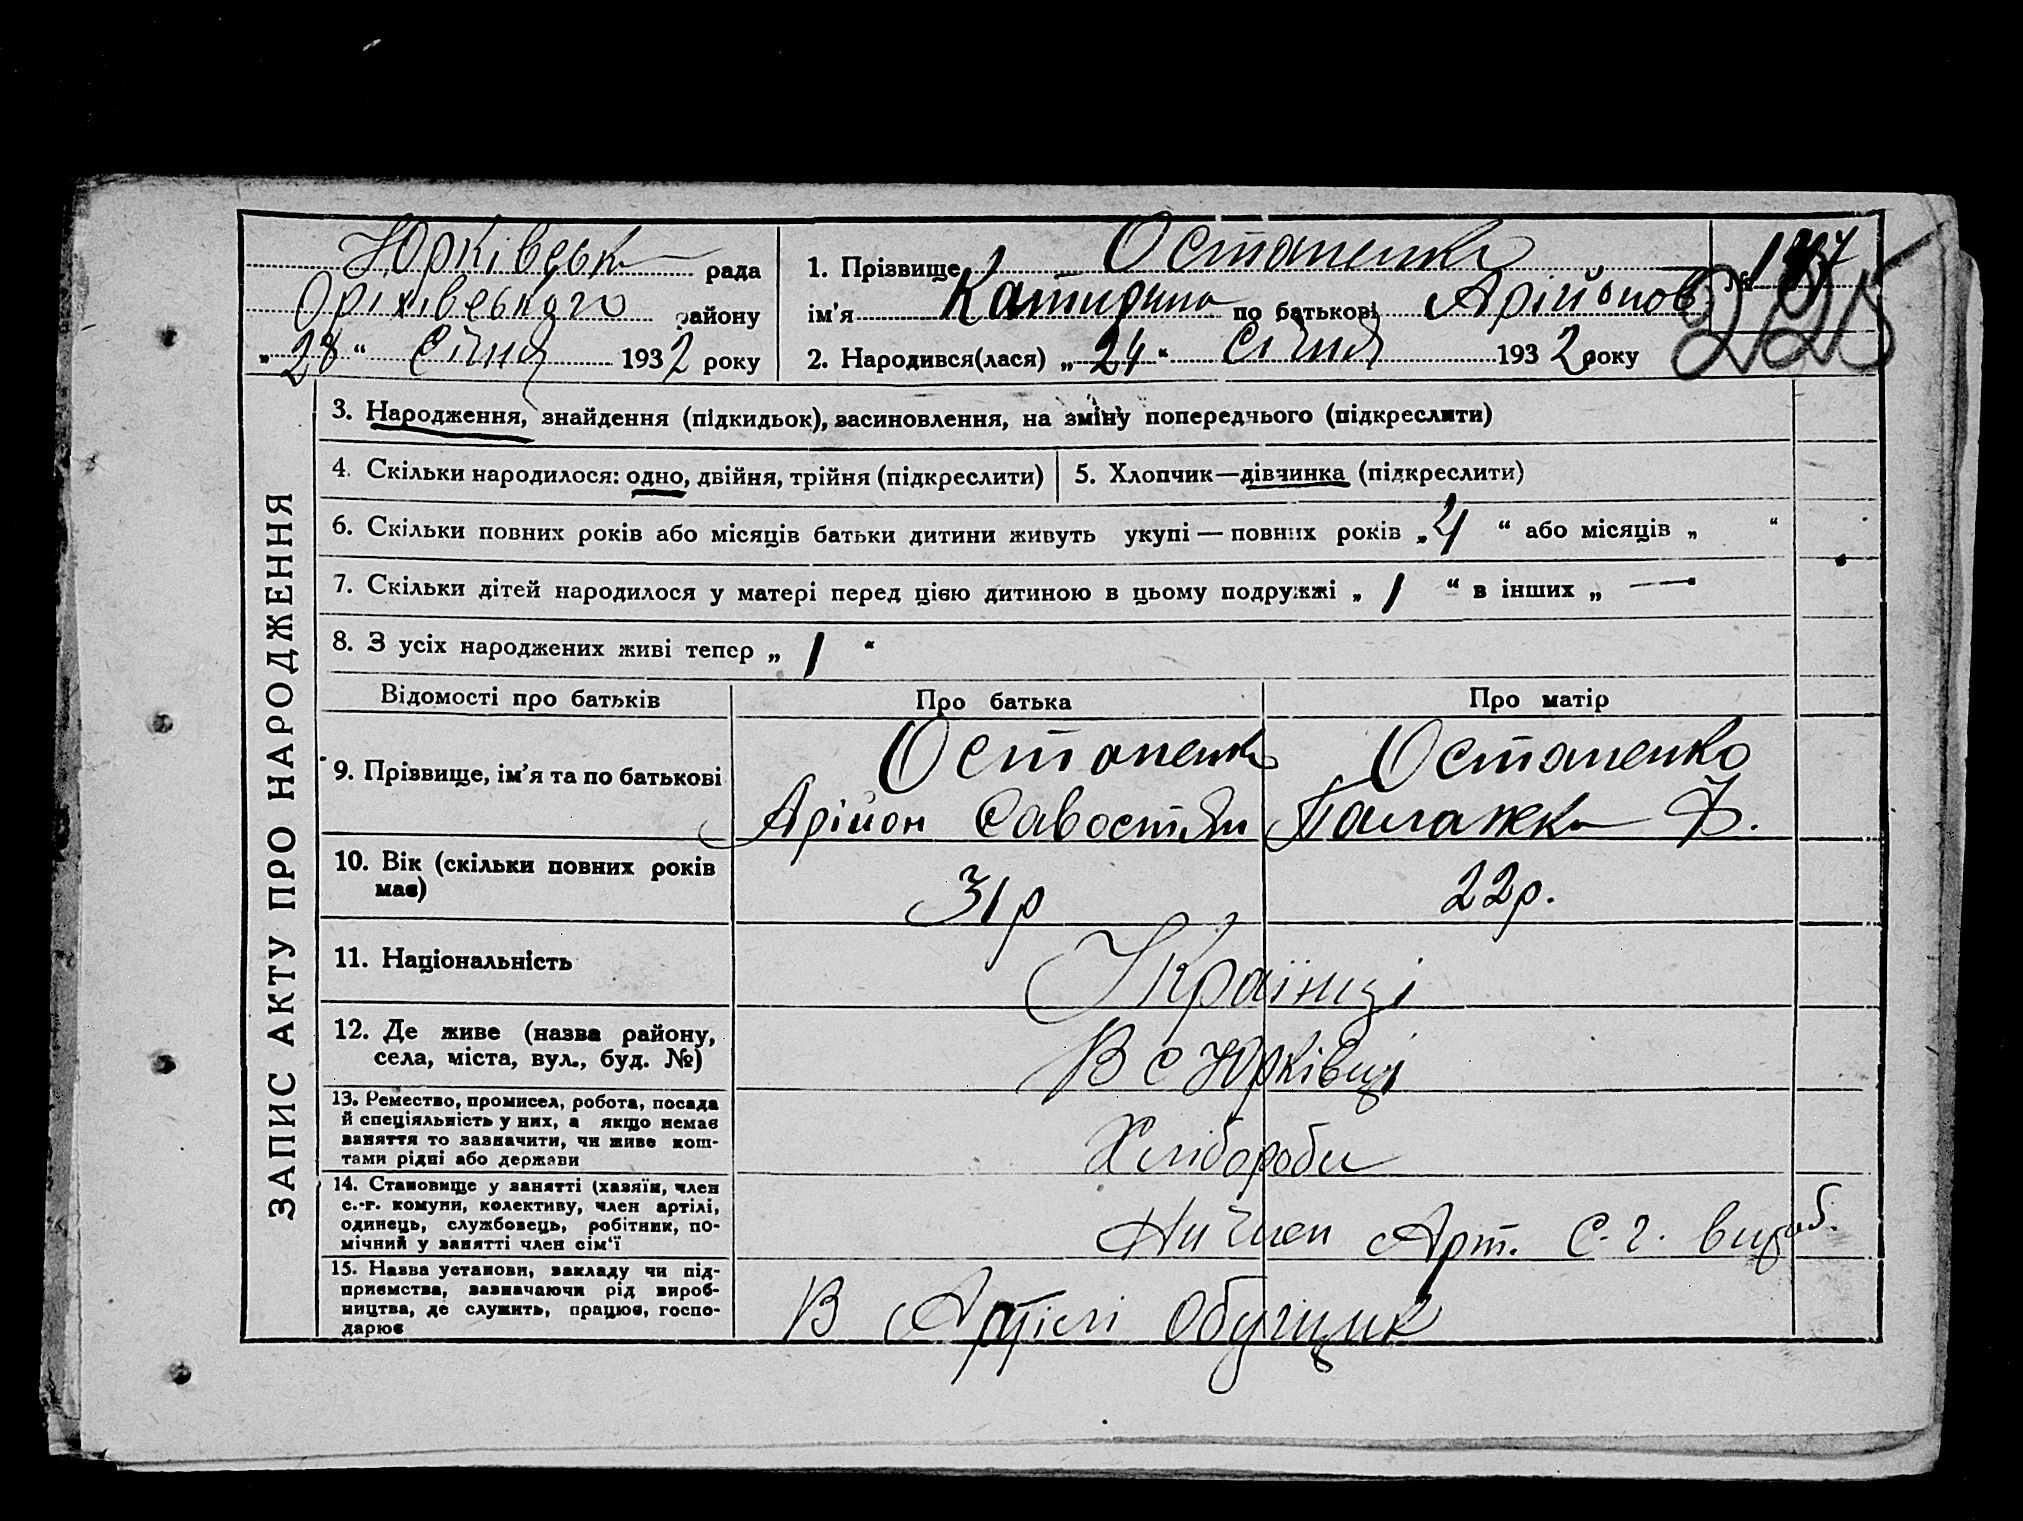 ЗАПИС АКТУ ПРО НАРОДЖЕННЯ
Юрківськ рада
Оріхівського району
„28“ Січня 1932 року
1. Прізвище Остапенко
ім'я Катирина по батькові Арійонов
2. Народився(лася) „24“ Січня 1932 року
№
225
3. Народження, знайдення (підкидьок), засиновлення, на зміну попереднього (підкреслити)
4. Скільки народилося: одно, двійня, трійня (підкреслити)
5. Хлопчик—дівчинка (підкреслити)
6. Скільки повних років або місяців батьки дитини живуть укупі — повних років „4“ або місяців „ “
7. Скільки дітей народилося у матері перед цією дитиною в цьому подружжі „1“ в інших „ —“
8. З усіх народжених живі тепер „1“
Відомості про батьків Про батька Про матір
9. Прізвище, ім'я та по батькові
Остапенко
Арійон Савостян
Остапенко
Палажка Ф.
10. Вік (скільки повних років
має)
31р
22р.
11. Національність
Українці
12. Де живе (назва району,
села, міста, вул., буд. №)
В с Юрківці
13. Ремество, промисел, робота, посада
й спеціяльність у них, а якщо немає
заняття то зазначити, чи живе кош-
тами рідні або держави
Хлібороби
14. Становище у занятті (хазяїн, член
с.-г. комуни, колективу, член артілі,
одинець, службовець, робітник, по-
мічний у занятті член сім'ї
член Арт. С.-г. вироб.
15. Назва установи, закладу чи під-
приємства, зазначаючи рід вироб-
ництва, де служить, працює, госпо-
дарює
В Артілі